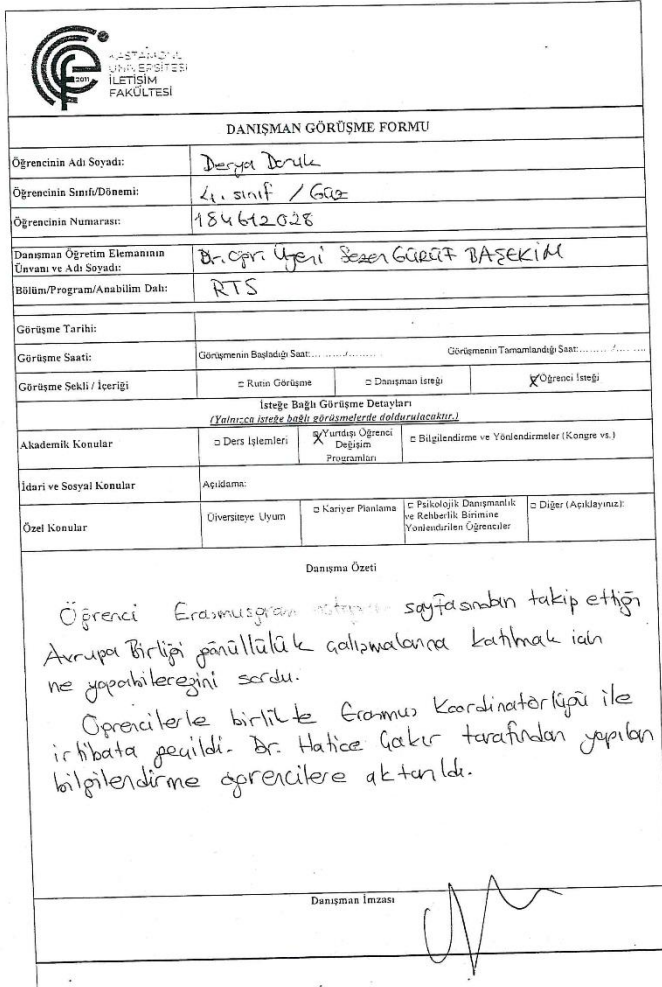 2011
KASTAMONU
ÜNİVERSİTESİ
İLETİŞİM
FAKÜLTESİ
DANIŞMAN GÖRÜŞME FORMU
Öğrencinin Adı Soyadı: Derya Doruk
Öğrencinin Sınıfı/Dönemi: 4. sınıf / Güz
Öğrencinin Numarası: 184612028
Danışman Öğretim Elemanının
Ünvanı ve Adı Soyadı: Dr. Öğr. Üyesi Sezen GÜRÜF BAŞEKİM
Bölüm/Program/Anabilim Dalı: RTS
Görüşme Tarihi:
Görüşme Saati: Görüşmenin Başladığı Saat:......../........ Görüşmenin Tamamlandığı Saat:......../........
Görüşme Şekli / İçeriği □ Rutin Görüşme □ Danışman İsteği X Öğrenci İsteği
İsteğe Bağlı Görüşme Detayları
(Yalnızca isteğe bağlı görüşmelerde doldurulacaktır.)
Akademik Konular □ Ders İşlemleri X Yurtdışı Öğrenci Değişim Programları □ Bilgilendirme ve Yönlendirmeler (Kongre vs.)
İdari ve Sosyal Konular Açıklama:
Özel Konular Üiversiteye Uyum □ Kariyer Planlama □ Psikolojik Danışmanlık ve Rehberlik Birimine Yönlendirilen Öğrenciler □ Diğer (Açıklayınız):
Danışma Özeti
Öğrenci Erasmusgram sayfasından takip ettiği
Avrupa Birliği gönüllülük çalışmalarına katılmak için
ne yapabileceğini sordu.
Öğrencilerle birlikte Erasmus Koordinatörlüğü ile
irtibata geçildi. Dr. Hatice Çakır tarafından yapılan
bilgilendirme öğrencilere aktarıldı.
Danışman İmzası